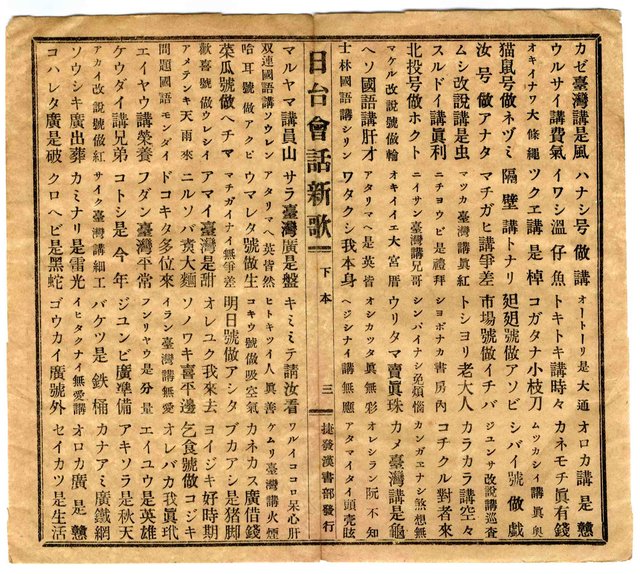 カゼ臺灣講是風 ハナシ号做講 オートーリ是大通 オロカ講是戇
ウルサイ講費氣 イワシ溫仔魚 トキトキ講時々 カネモチ眞有錢
オキイナワ大條繩 ツクエ講是棹 コガタナ小枝刀 ムツカシイ講眞奥
猫鼠号做ネヅミ 隔壁講トナリ 廻廻號做アソビ シバイ號做戲
汝号做アナタ マチガヒ講爭差 市場號做イチバ ジユンサ改說講巡査
ムシ改說講是虫 マツカ臺灣講眞紅 トシヨリ老大人 カラカラ講空々
スルドイ講眞利 ニチヨウビ是禮拜 シヨボナカ書房內 コチクル對者來
北投号做ホクト ニイサン臺灣講兄哥 シンパイナシ免煩惱 カンガエナシ煞想無
マケル改說號做輸 オキイイエ大宮厝 ウリタマ賣眞珠 カメ臺灣講是龜
ヘソ國語講肝才 アタリマヘ是英皆 オシカツタ眞無彩 オレシラン阮不知
士林國語講シリン ワタクシ我本身 ヘジシナイ講無應 アタマイタイ頭壳眩
日台會話新歌 下本 三 捷發漢書部發行
マルヤマ講員山 サラ臺灣廣是盤 キミミテ請汝看 ワルイココロ呆心肝
双連國語講ソウレン アタリマヘ英皆然 ヒトキツイ人眞善 ケムリ臺灣講火煙
哈耳號做アクビ ウマレタ號做生 コキウ號做吸空氣 カネカス廣借錢
菜瓜號做ヘチマ マチガイナイ無爭差 明日號做アシタ ブカアシ是猪脚
歡喜號做ウレシイ アマイ臺灣是甜 オレユク我來去 ヨイジキ好時期
アメテンキ天雨來 ニルソバ煑大麵 ソノワキ喜平邊 乞食號做コジキ
問題國語モンダイ ドコキタ多位來 イラン臺灣講無愛 オレバカ我眞玳
エイヤウ講榮養 フダン臺灣平常 フンリヤウ是分量 エイユウ是英雄
ケウダイ講兄弟 コトシ是今年 ジユンビ廣準備 アキソラ是秋天
アカイ改說號做紅 サイク臺灣講細工 バケツ是鉄桶 カナアミ廣鐵網
ソウシキ廣出葬 カミナリ是雷光 イヒタクナイ無愛講 オロカ廣是戇
コハレタ廣是破 クロヘビ是黑蛇 ゴウカイ廣號外 セイカツ是生活